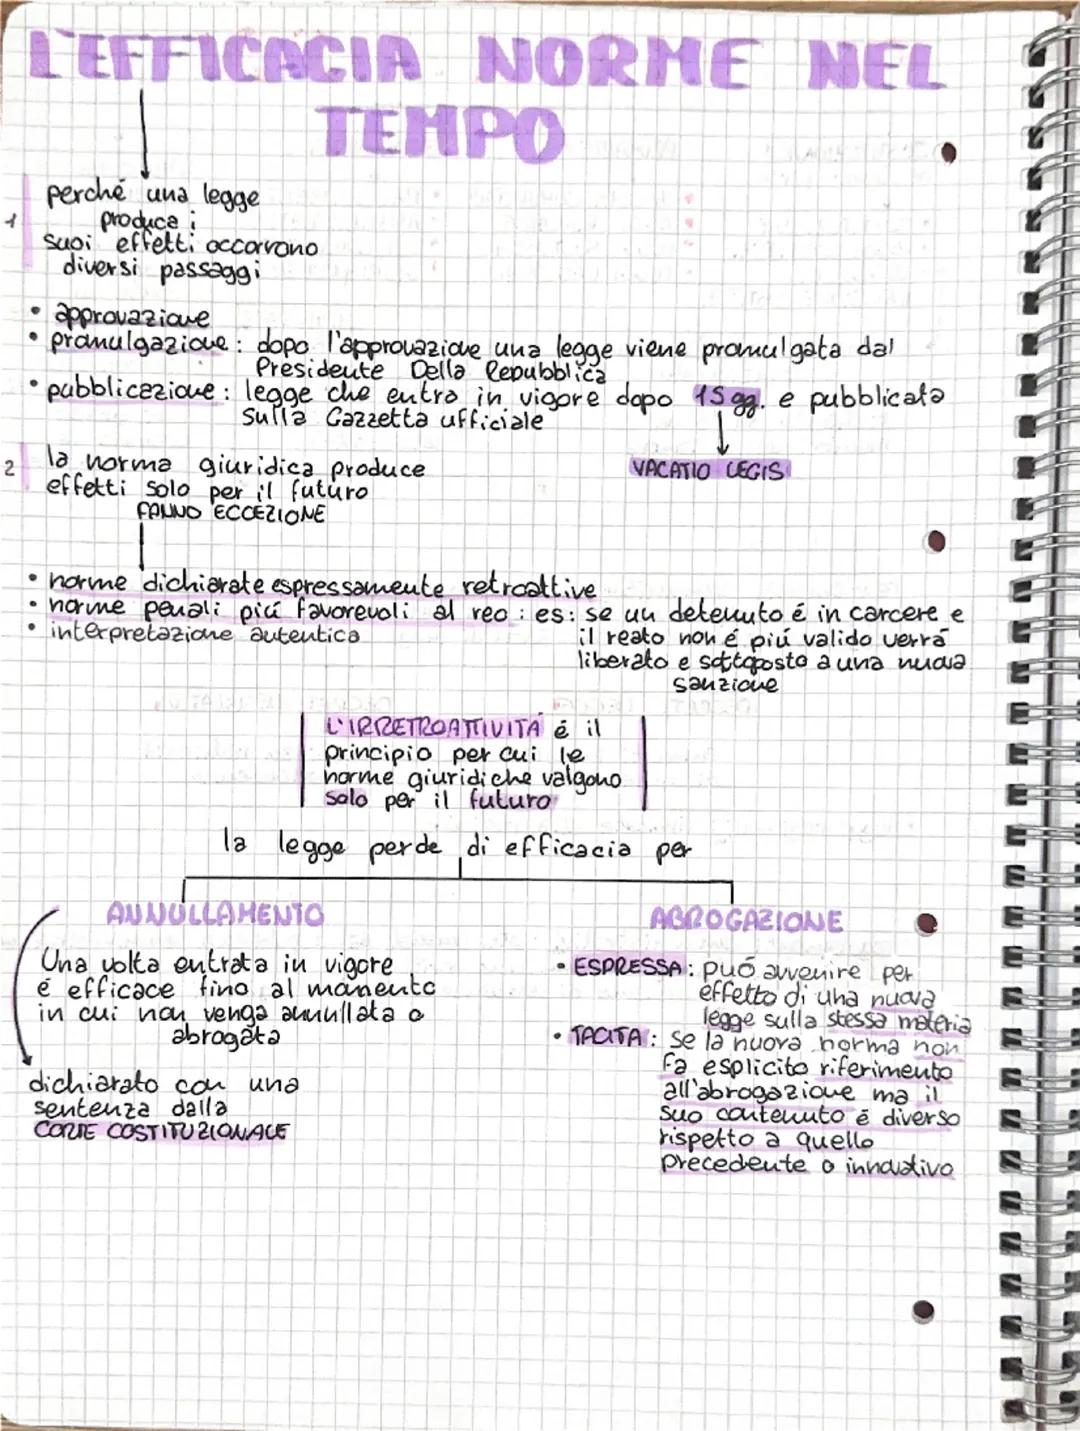 L'EFFICACIA NORME NEL
TEMPO
perché una legge
1 produca i
suoi effetti occorrono
diversi passaggi
• approvazione
• promulgazione: dopo l'approvazione una legge viene promulgata dal
Presidente Della Repubblica
• pubblicazione: legge che entra in vigore dopo 15 gg. e pubblicata
sulla Gazzetta ufficiale
VACATIO LEGIS
2 la norma giuridica produce
effetti solo per il futuro
FANNO ECCEZIONE
• norme dichiarate espressamente retroattive
• norme penali piú favorevoli al reo: es: se un detenuto é in carcere e
il reato non é piú valido verrá
liberato e sottoposto a una nuova
sanzione
• interpretazione autentica
L'IRRETROATTIVITÁ é il
principio per cui le
norme giuridiche valgono
solo per il futuro
la legge perde di efficacia per
ANNULLAMENTO
Una volta entrata in vigore
é efficace fino al momento
in cui non venga annullata o
abrogata
dichiarato con una
sentenza dalla
CORTE COSTITUZIONALE
ABROGAZIONE
• ESPRESSA: puó avvenire per
effetto di una nuova
legge sulla stessa materia
• TACITA: se la nuova norma non
fa esplicito riferimento
all'abrogazione ma il
suo contenuto é diverso
rispetto a quello
precedente o innovativo